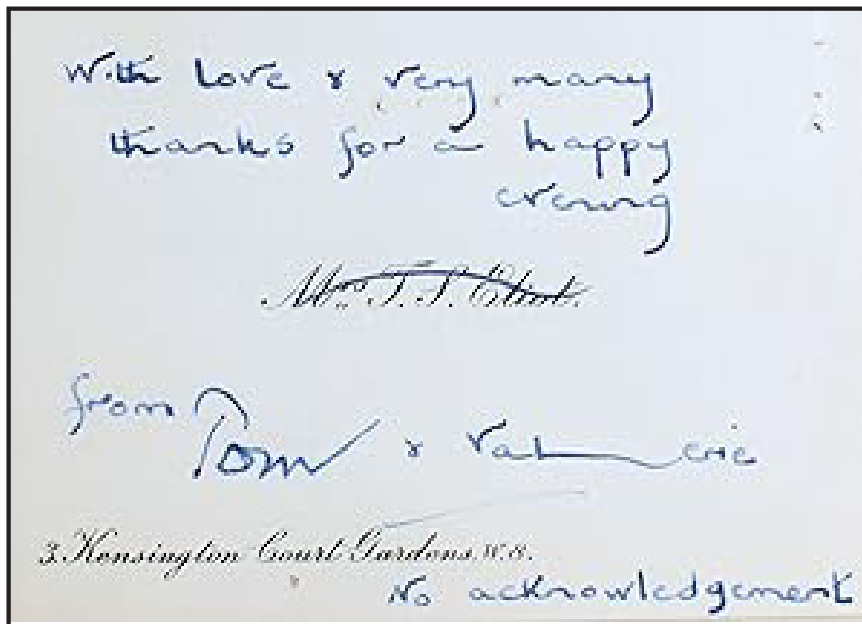 With love & very many
thanks for a happy
evening
Mrs T. S. Eliot.
from Tom & Valerie
3. Kensington Court Gardens. W.8.
No acknowledgement